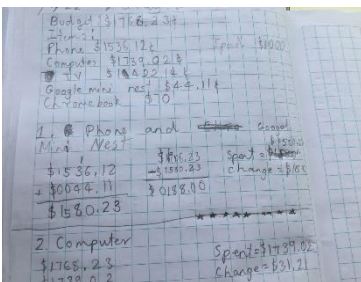 Budget: $1768.23¢
Items:
Phone $1536.12¢
Computer $1739.02¢
TV $1422.14¢
Google mini nest $44.11¢
Chromebook $0
1. Phone and Google
Mini Nest
$1536.12
+ $0044.11
$1580.23
- $1580.23
$0188.00
Spent =
Change = $188
2. Computer
$1768.23
Spent = $1739.02
Change = $31.21